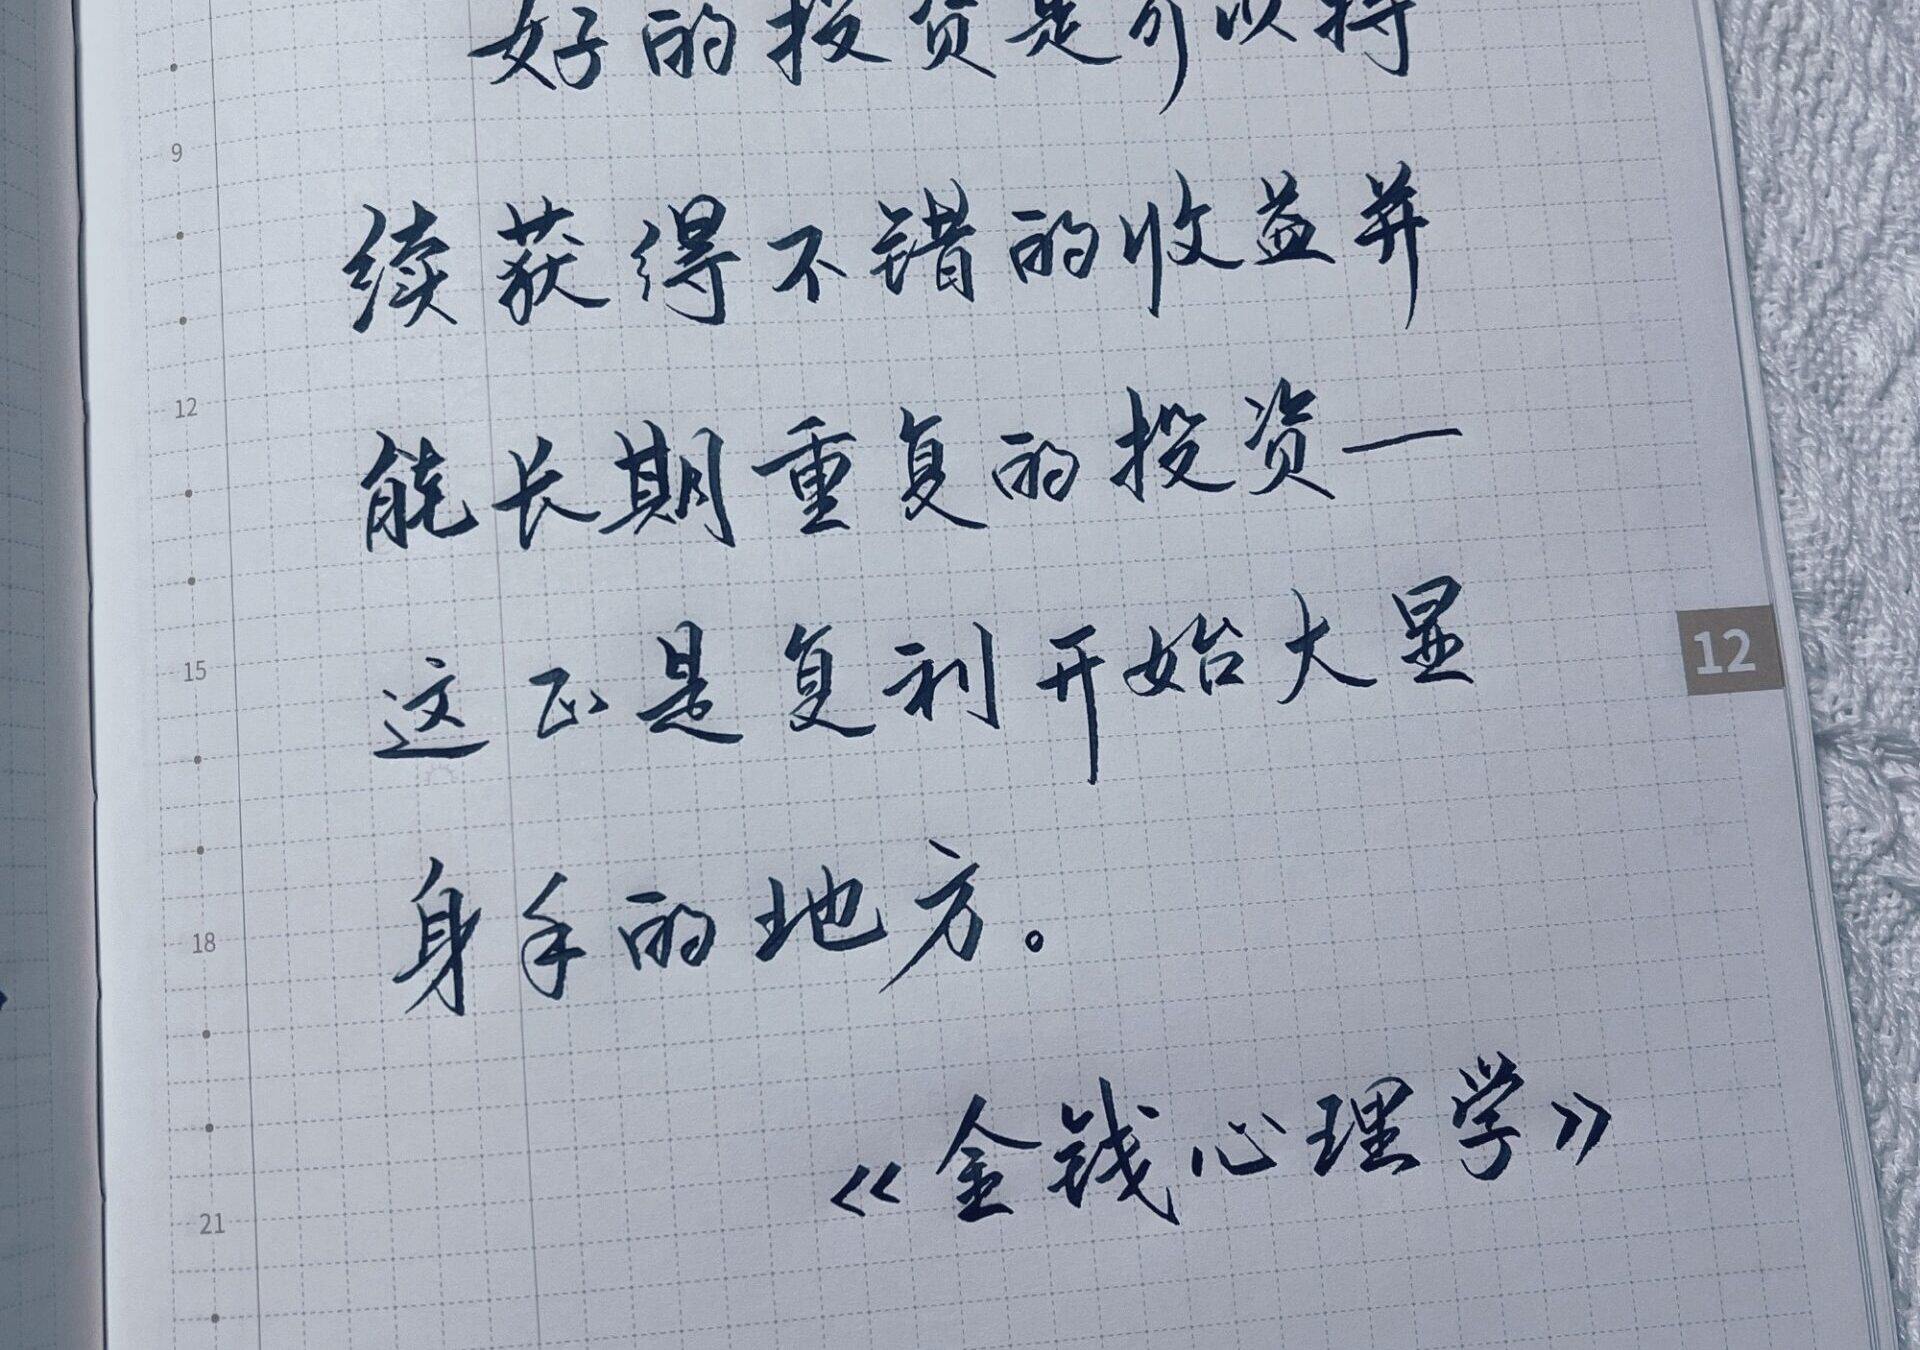 好的投资是可以持
9
续获得不错的收益并
12
能长期重复的投资—
15
这正是复利开始大显
12
身手的地方。
18
《金钱心理学》
21